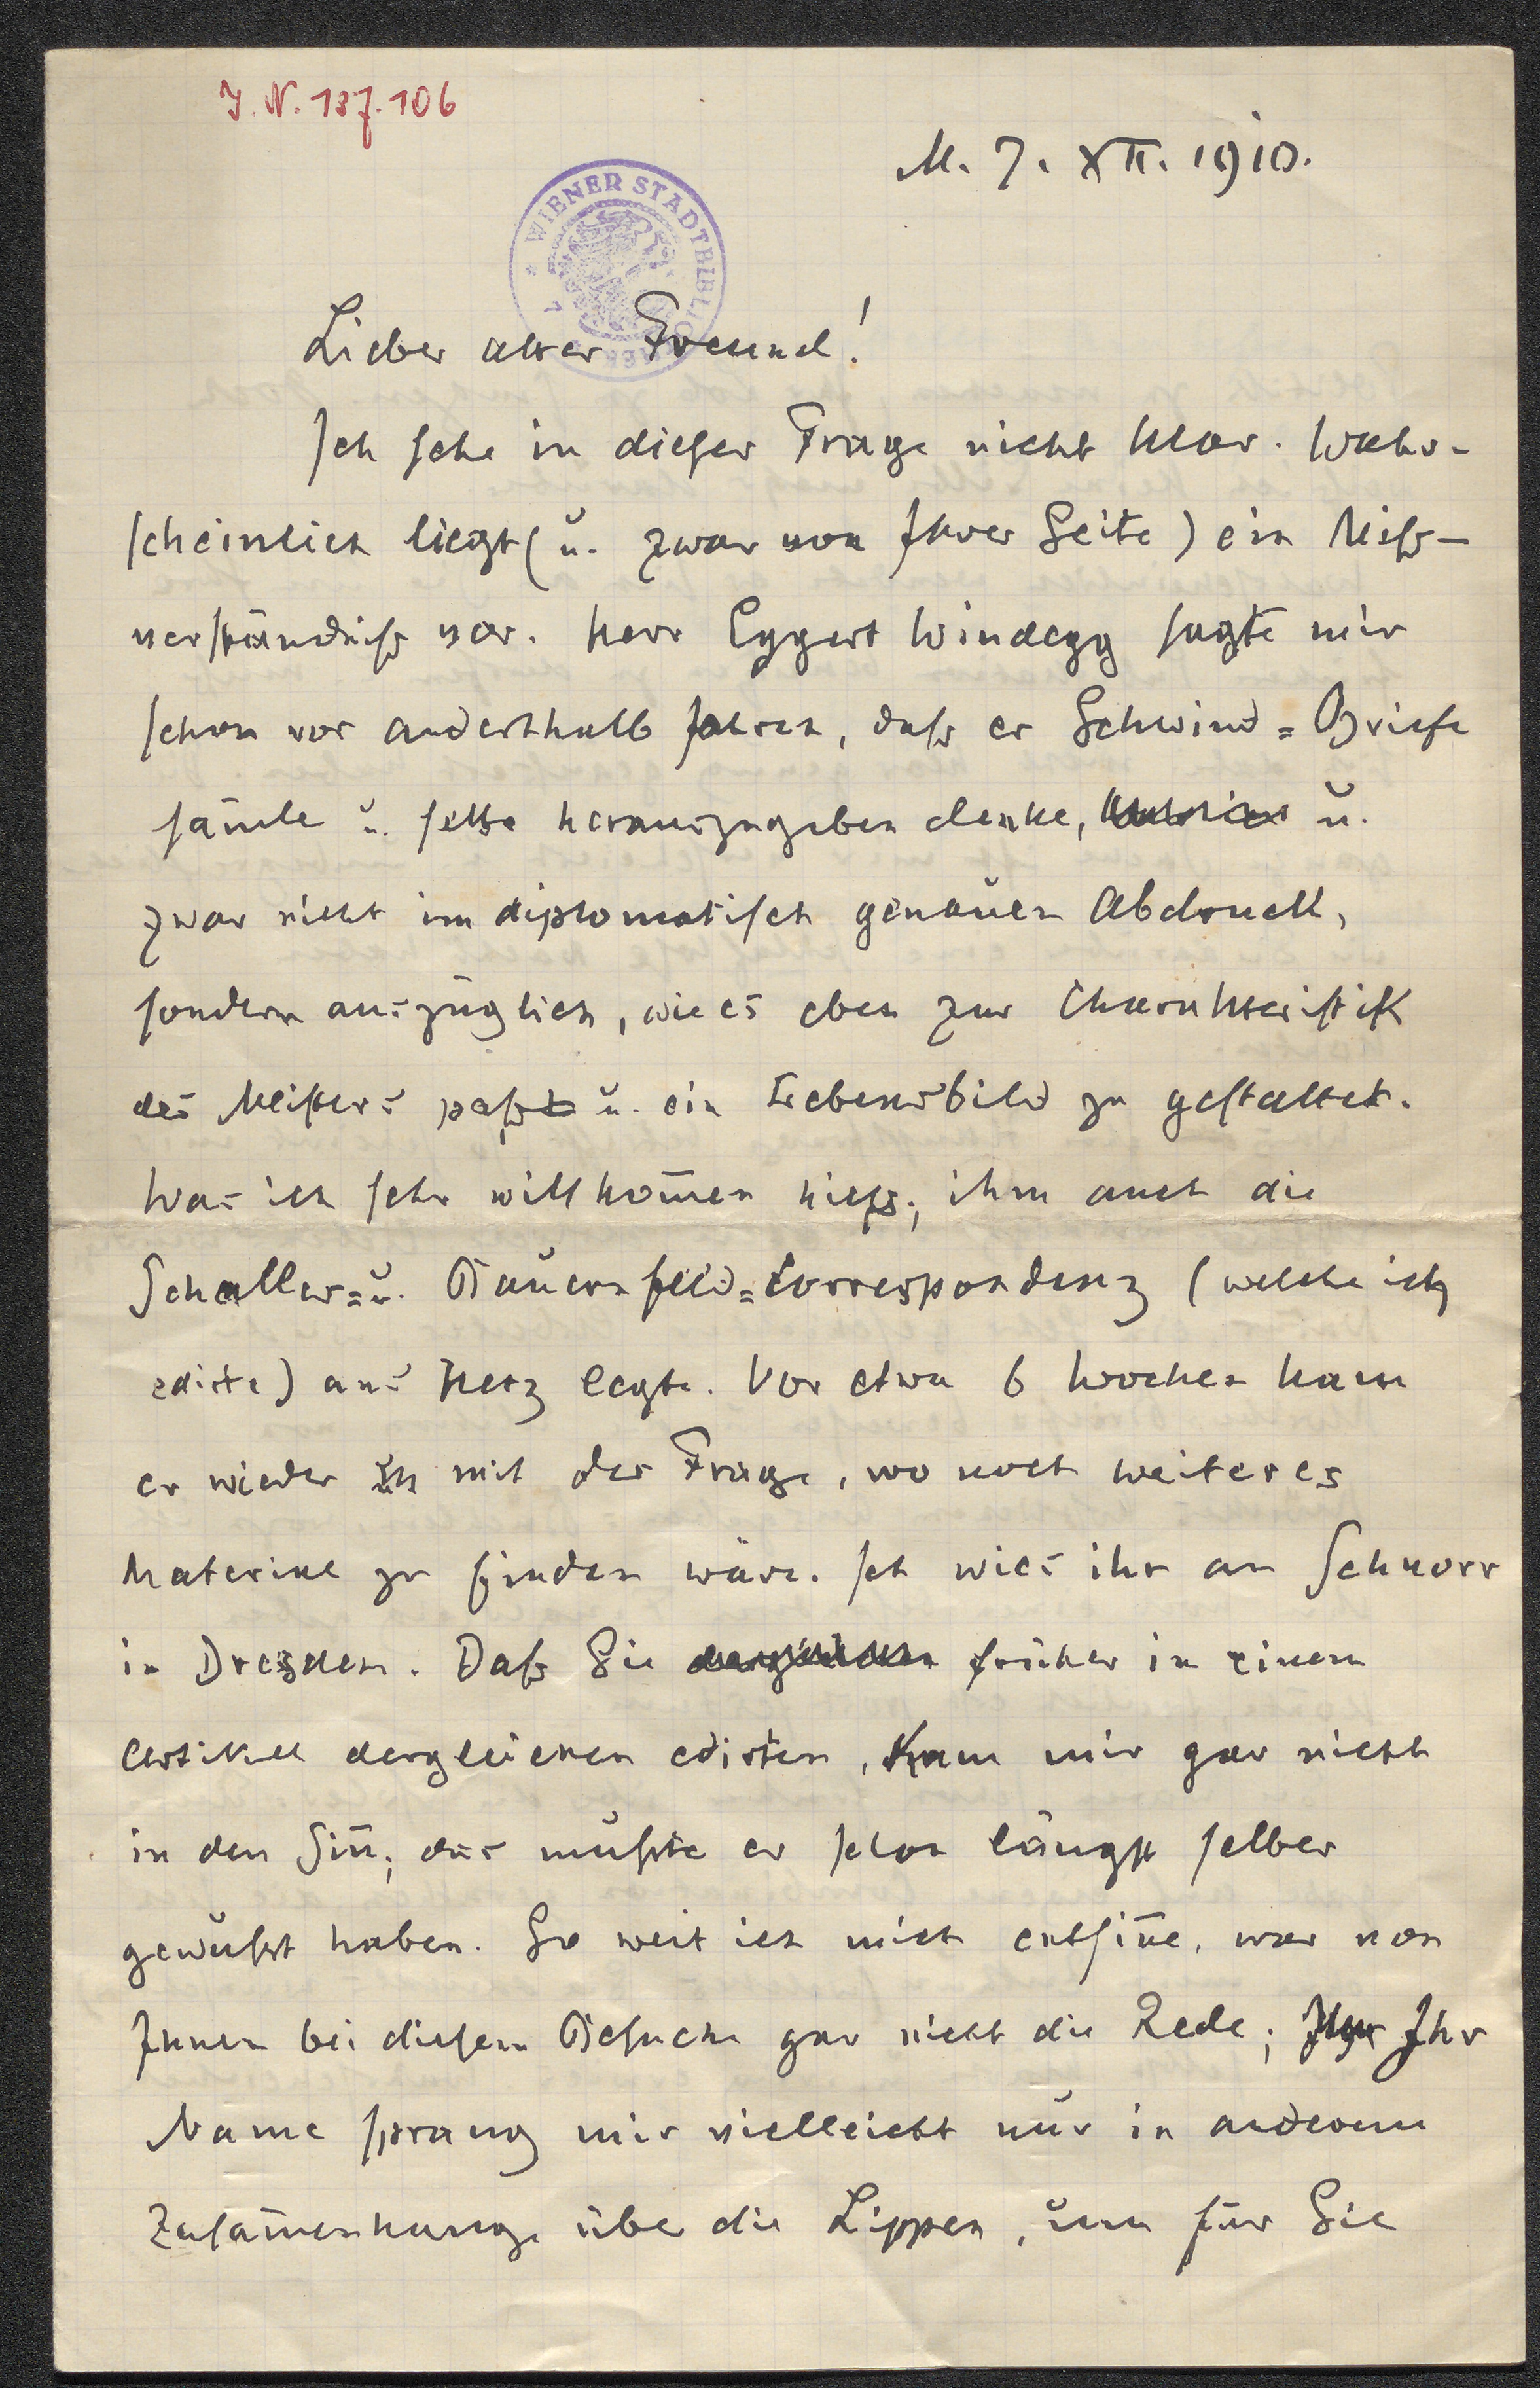 J. N. 137.106
M. 7. XII. 1910.
WIENER STADTBIBLIOTHEK
Lieber alter Freund!
Ich sehe in dieser Frage nicht klar. Wahr-
scheinlich liegt (u. zwar von Ihrer Seite) ein Miß-
verständniß vor. Herr Eggert Windegg sagte mir
schon vor anderthalb Jahren, daß er Schwind=Briefe
sam̄le u. selbe herauszugeben denke, u.
zwar nicht im diplomatisch genauen Abdruck,
sondern auszüglich, wie es eben zur Charakteristik
des Meisters paßt u. ein Lebensbild zu gestaltet.
Was ich sehr willkom̄en hieß; ihm auch die
Schaller= u. Bauernfeld=Correspondenz (welche ich
edirte) ans Herz legte. Vor etwa 6 Wochen kam
er wieder mit der Frage, wo noch weiteres
Material zu finden wäre. Ich wies ihn an Schnorr
in Dresden. Daß Sie dergleichen früher in einem
Artikel dergleichen edirten, kam mir gar nicht
in den Sin̄; das mußte er schon längst selber
gewußt haben. So weit ich mich entsin̄e, war von
Ihnen bei diesem Besuche gar nicht die Rede; Ihr Ihr
Name sprang mir vielleicht nur in anderem
Zusam̄enhange über die Lippen, um für Sie